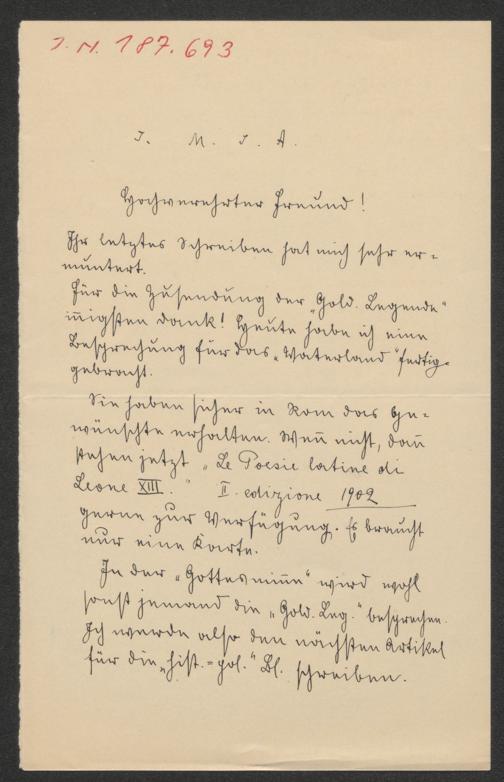 J. N. 187.693
J. M. J. A.
Hochverehrter Freund!
Ihr letztes Schreiben hat mich sehr er-
muntert.
Für die Zusendung der „Gold. Legende"
iñigsten Dank! Heute habe ich eine
Besprechung für das „Vaterland" fertig-
gebracht.
Sie haben sicher in Rom das Ge-
wünschte erhalten. Weñ nicht, dañ
stehen jetzt „Le Poesie latine di
Leone XIII." II. edizione 1902
gerne zur Verfügung. Es braucht
nur eine Karte.
In der „Gottesmiñe" wird wohl
sonst jemand die „Gold. Leg." besprechen.
Ich werde also den nächsten Artikel
für die „hist.=pol." Bl. schreiben.